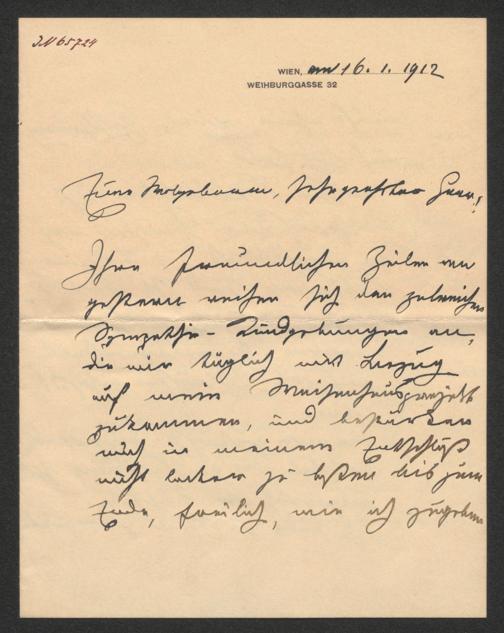 IN 65724
WIEN, am 16. 1. 1912
WEIHBURGGASSE 32
Euer Wolgeboren, sehr geehrter Herr!
Ihre freundlichen Zeilen von
gestern reihen sich den zalreichen
Sympathie-Kundgebungen an,
die mir täglich mit Bezug
auf mein Waisenhausprojekt
zukommen, und bestärken
mich in meinem Entschluß
nicht locker zu lassen bis zum
Ende, freilich, wie ich zugeben